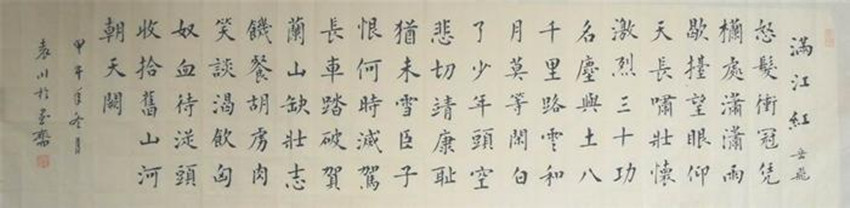 滿江紅 岳飛
怒髮衝冠凭
欄處瀟瀟雨
歇擡望眼仰
天長嘯壯懷
激烈三十功
名塵與土八
千里路雲和
月莫等閑白
了少年頭空
悲切靖康恥
猶未雪臣子
恨何時滅駕
長車踏破賀
蘭山缺壯志
饑餐胡虜肉
笑談渴飲匈
奴血待從頭
收拾舊山河
朝天闕
甲午年冬月
袁川於